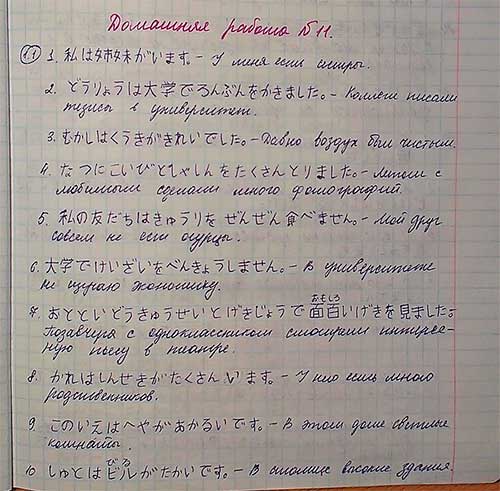 Домашняя работа №11.
1.1 1. 私は姉妹がいます。- У меня есть сестры.
2. どうりょうは大学でろんぶんをかきました。- Коллеги писали
тезисы в университет.
3. むかしはくうきがきれいでした。- Давно воздух был чистым.
4. なつにこいびとしゃしんをたくさんとりました。- Летом с
любимым сделали много фотографий.
5. 私の友だちはきゅうりをぜんぜん食べません。- Мой друг
совсем не ест огурцы.
6. 大学でけいざいをべんきょうしません。- В университете
не изучаю экономику.
7. おとといどうきゅうせいとげきじょうで面百いげきを見ました。
おもしろ
Позавчера с одноклассником смотрели интерес-
ную пьесу в театре.
8. かれはしんせきがたくさんいます。- У него есть много
родственников.
9. このいえはへやがあかるいです。- В этом доме светлые
комнаты.
10. しゅとはビルがたかいです。- В столице высокие здания.
びる